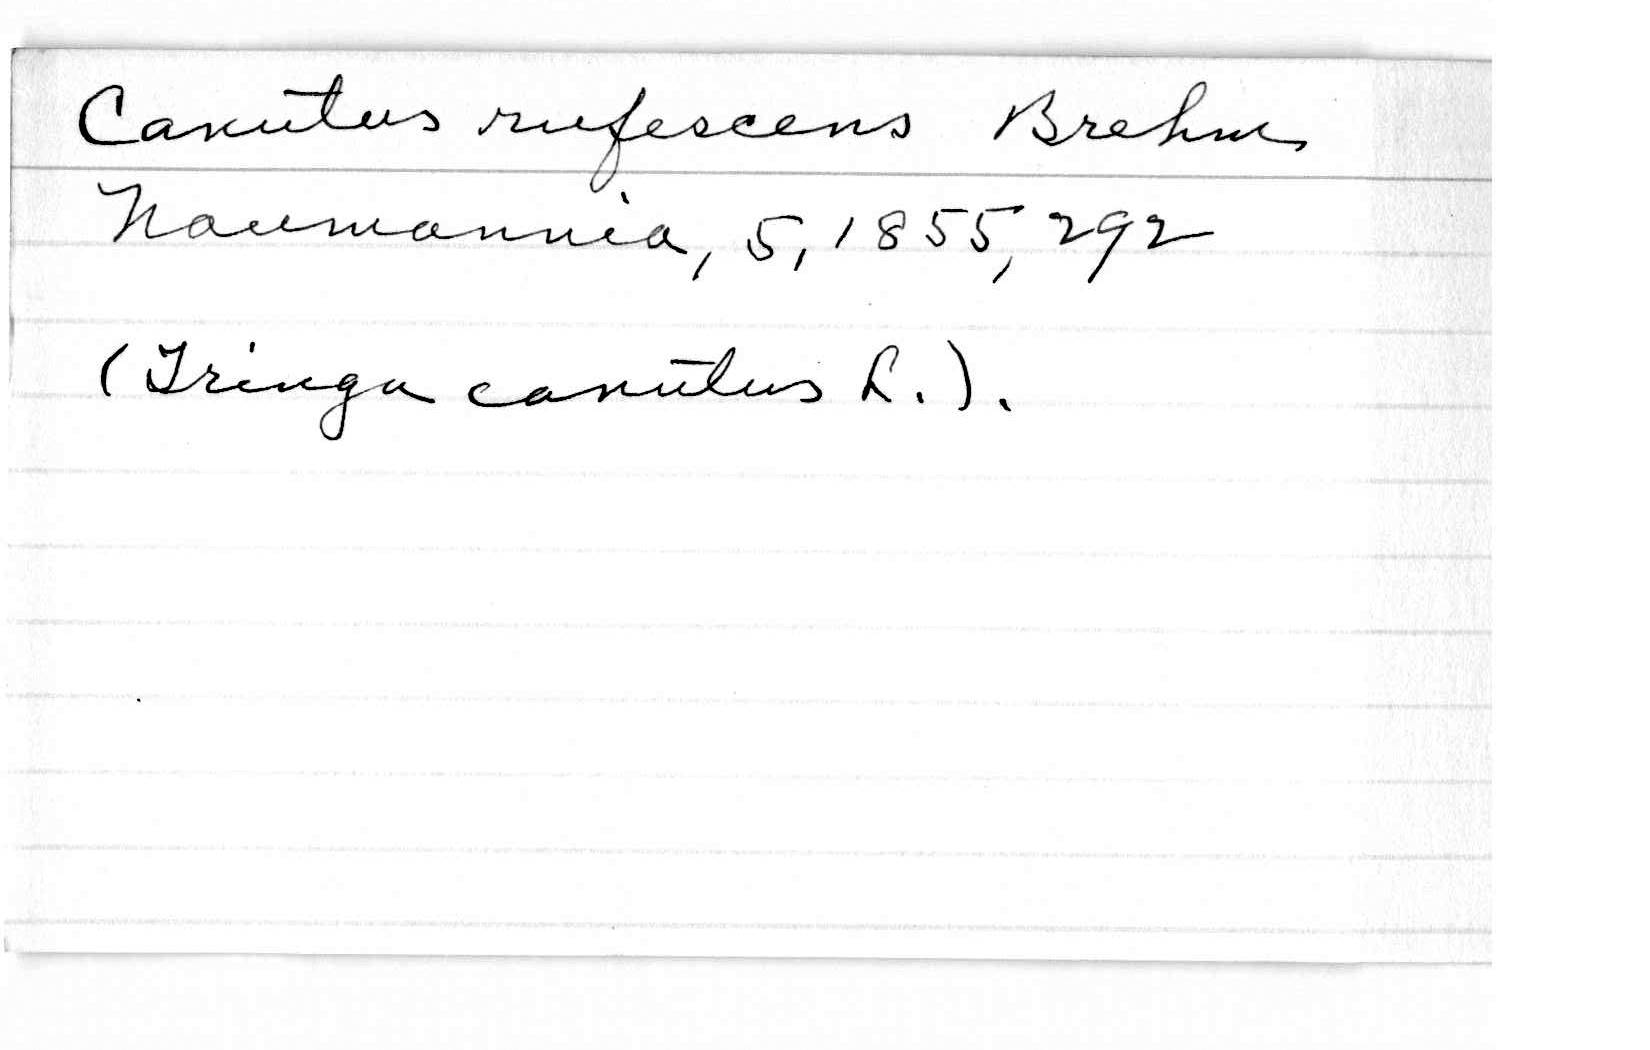 Canutus rufescens Brehm
Naumannia, 5, 1855, 292
(Tringa canutus L.).